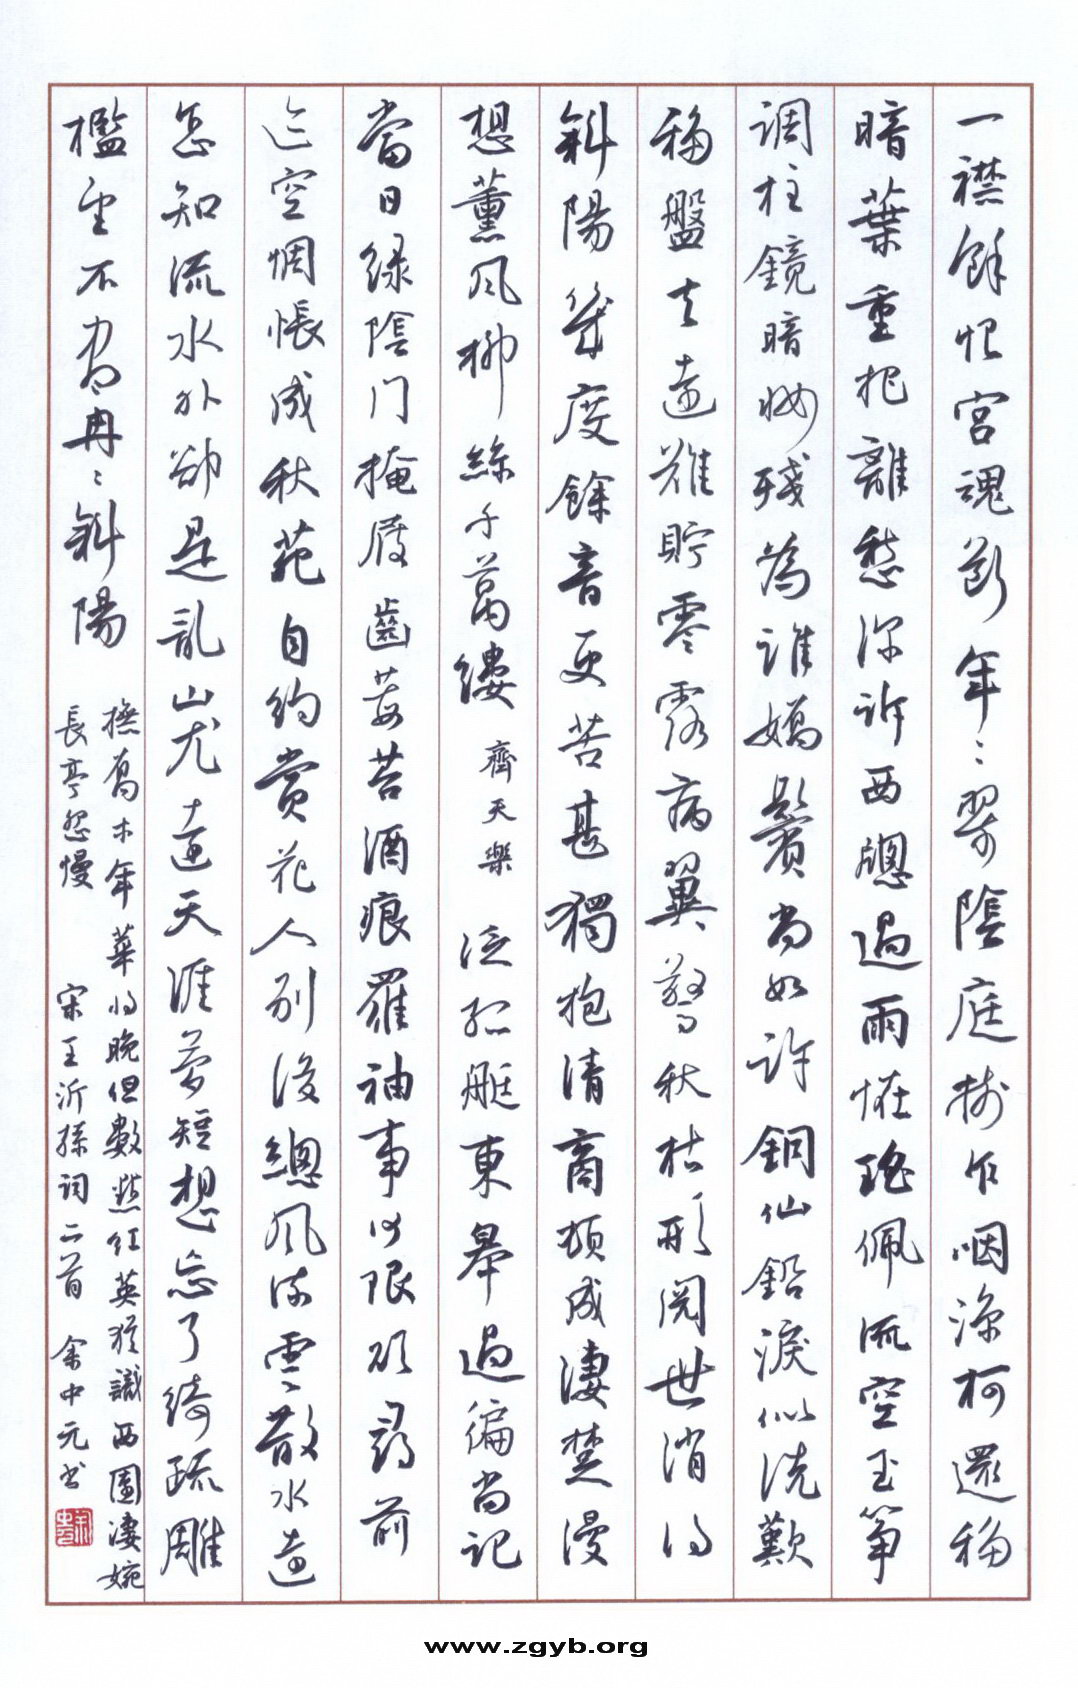 一襟餘恨宮魂斷年〻翠陰庭樹乍咽涼柯還移
暗葉重把離愁深訴西窗過雨怪瑤佩流空玉箏
调柱鏡暗妝殘為誰嬌鬢尚如許銅仙鉛淚似洗歎
移盤去遠難貯零露病翼驚秋枯形閱世消得
斜陽幾度餘音更苦甚獨抱清商頓成淒楚漫
想薰風柳絲千萬縷 齊天樂 泛孤艇東皋過徧尚記
當日绿陰门掩屐齒莓苔酒痕羅袖事何限欲尋前
迹空惆悵成秋苑自约賞花人别後總風流雲散水遠
怎知流水外卻是亂山尤遠天涯夢短想忘了綺疏雕
檻望不盡冉〻斜陽 撫喬木年華将晚但數點红英猶識西園淒婉
長亭怨慢 宋王沂孫詞二首 余中元书
www.zgyb.org